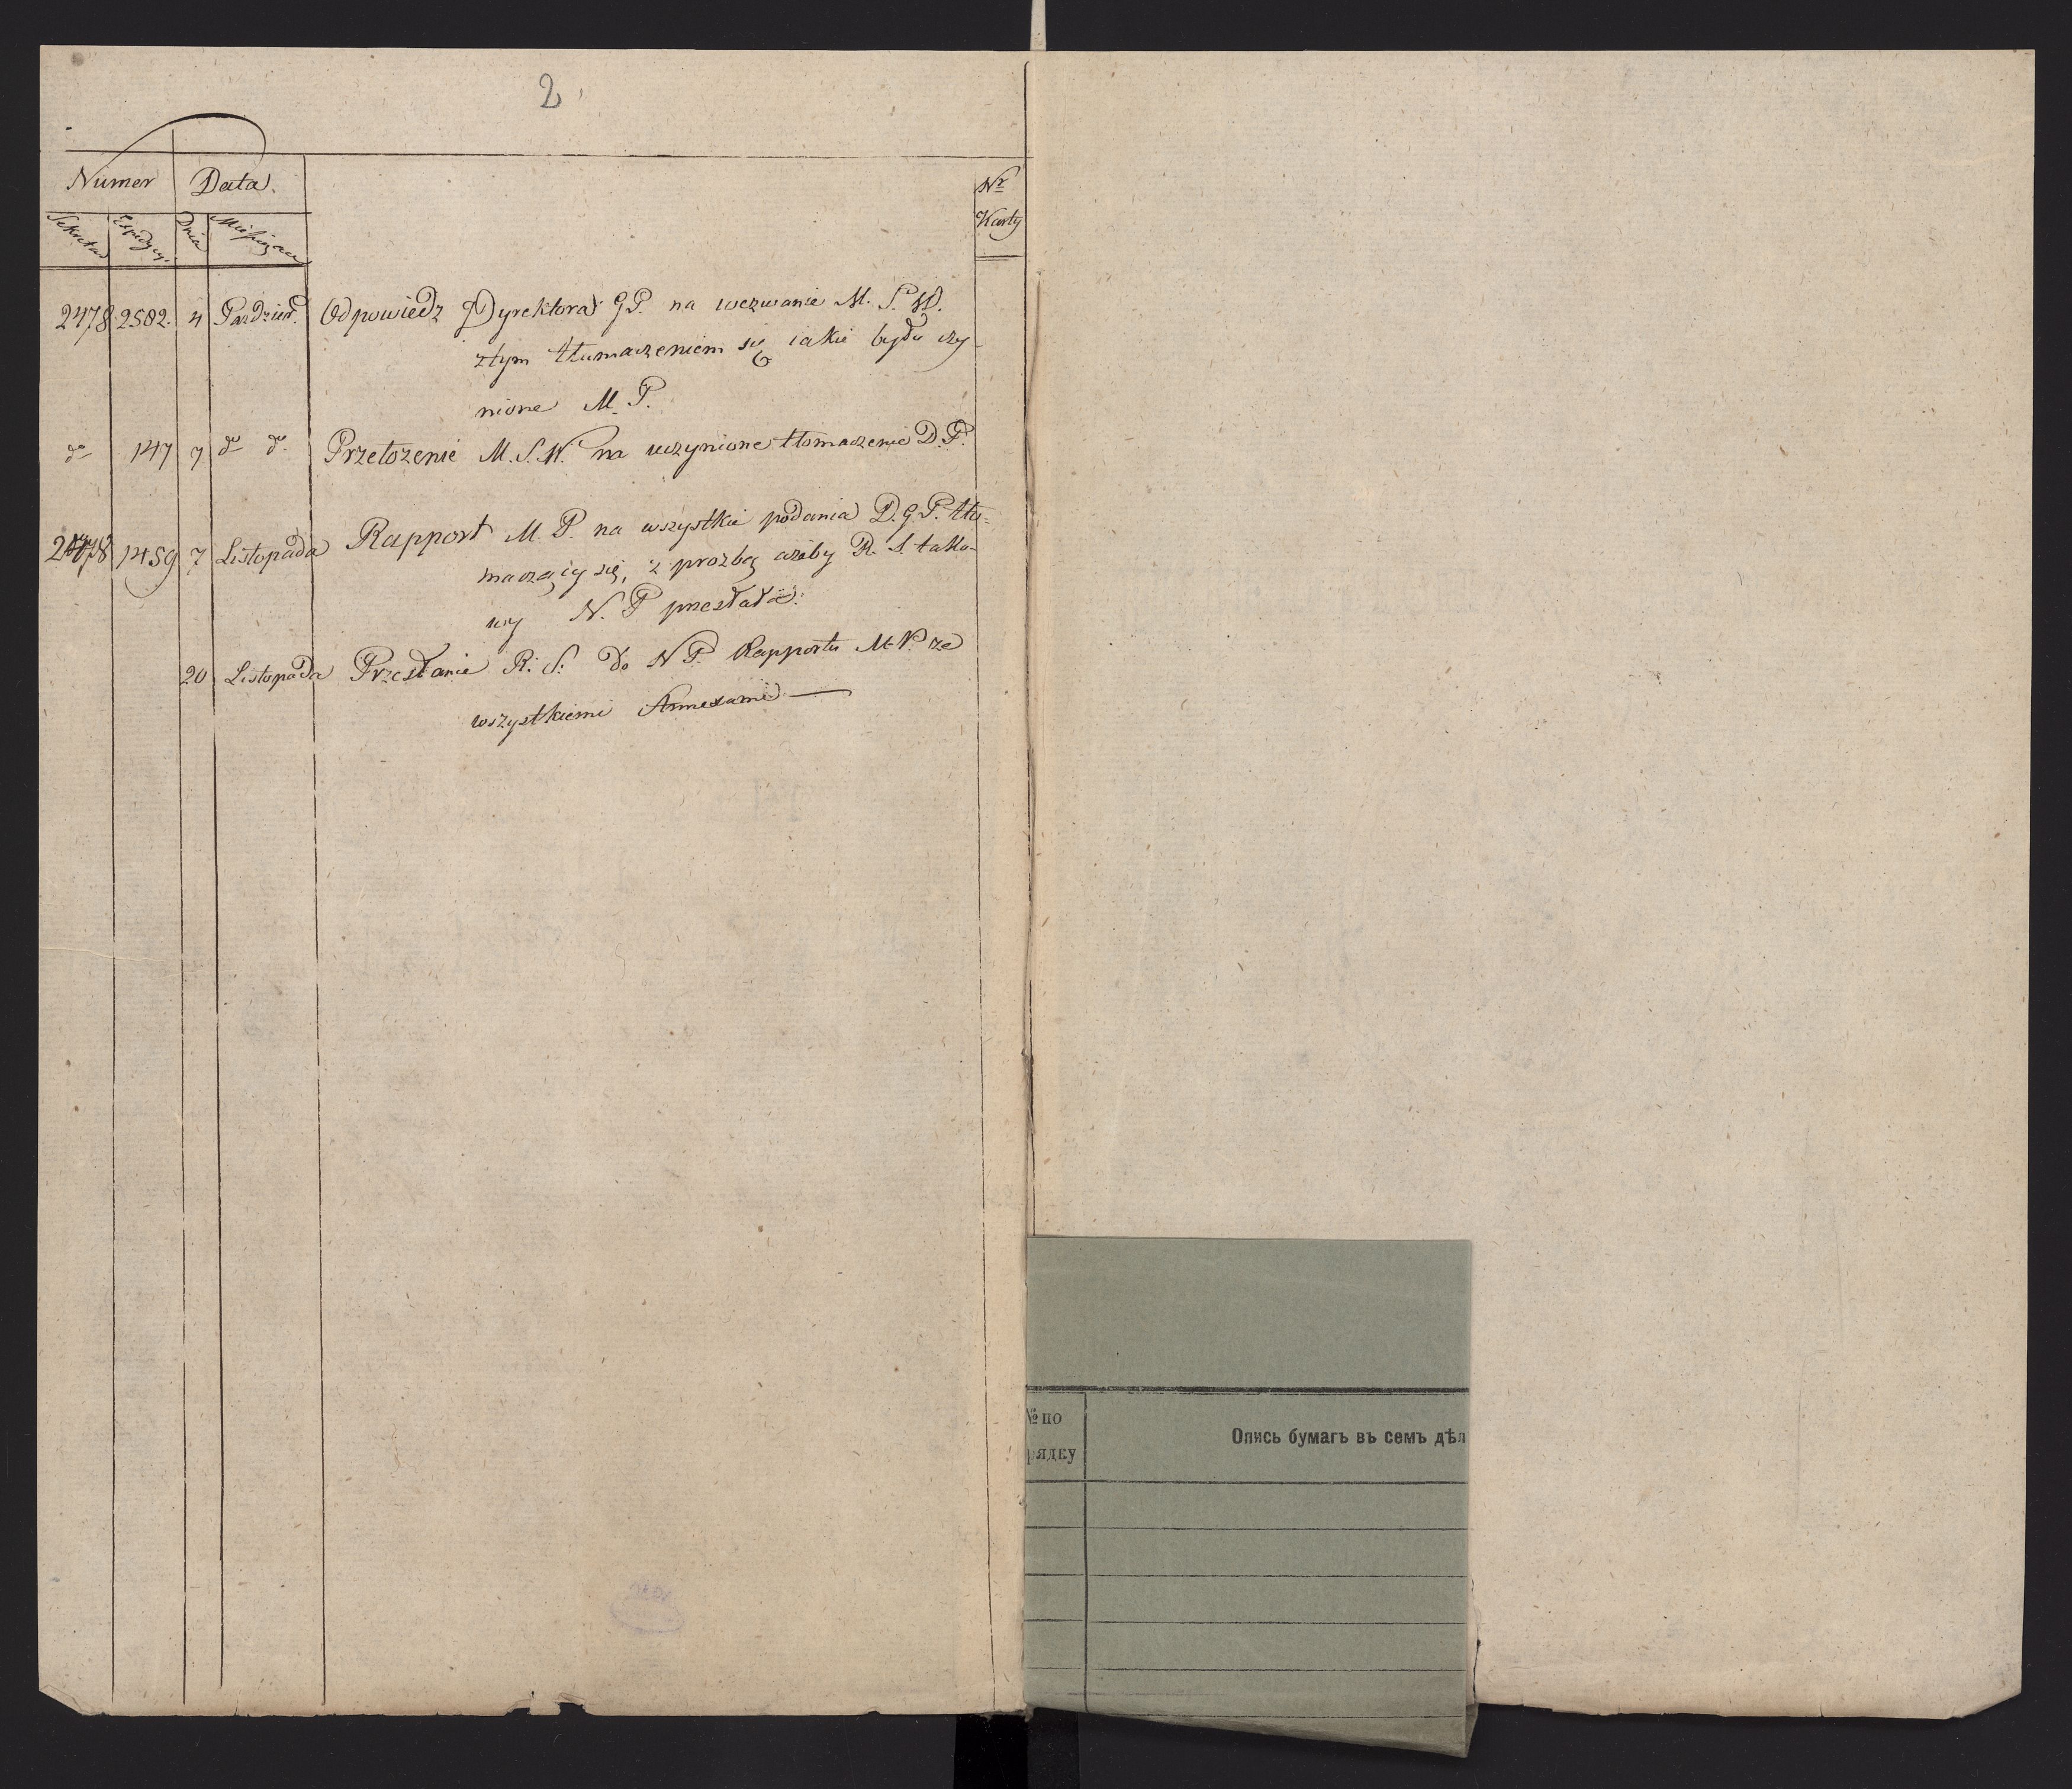 2
Numer Data. Nr
Sekretar. Expedycyi. Dnia Miesiąca Karty
2478 2582. 4 Paździer. Odpowiedz Dyrektora G P. na wezwanie M. S. W.
z tym tłumaczeniem się iakie będzie czy-
nione M. P.
do 147 7 do do Przełożenie M. S. W. na uczynione tłomaczenie D. P.
2478 1459 7 Listopada Rapport M. P. na wszystkie podania D. G. P. tło-
maczący się, z prozbą ażeby R. S. tako-
wy N. P przesłała.
20 Listopada Przesłanie R. S. do N P. Rapportu M. P. ze
wszystkiemi Annexami
№ по
рядку
Опись бумагъ въ семъ дѣл